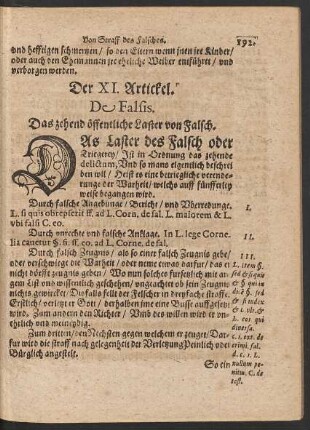 Von Straff des Falsches.
192.
vnd hefftigen schmertzen / so den Eltern wenn jnen jre Kinder /
oder auch den Ehemannen jre eheliche Weiber entführet / vnd
verborgen werden.
Der XI. Artickel.
De Falsis.
Das zehend öffentliche Laster von Falsch.
DAs Laster des Falsch oder
Triegerey / Ist in Ordnung das zehende
delictum, Vnd so mans eigentlich beschrei
ben wil / Heist es eine betriegliche verende-
runge der Warheit / welchs auff fünfferley
weise begangen wird.
Durch falsche Angebunge / Bericht / vnd Vberredunge.
I.
L. si quis obrepserit ff. ad L. Corn. de fal. L. maiorem & L.
vbi falsi C. eo.
Durch vnrechte vnd falsche Anklage. In L. lege Corne-
II.
lia cauetur §. si. ff. eo. ad L. Corne. de fal.
Durch falsch Zeugnis / als so einer falsch Zeugnis gebe /
III.
oder verschwiege die Warheit / oder neme etwas darfür / das er
nicht dörfft zeugnis geben / Wo nun solches fursetzlich mit ar-
gem List vnd wissentlich geschehen / vngeachtet ob sein Zeugnis
nichts gewircket / Disfalls felt der Felscher in dreyfache straffe.
Erstlich / verletzet er Gott / derhalben jme eine Busse auffgelegt
wird. Zum andern den Richter / Vmb des willen wird er vn-
ehrlich vnd meineydig.
Zum dritten / den Nechsten gegen welchem er zeuget / Dar-
für wird die straff nach gelegenheit der Verletzung Peinlich vnd
Bürglich angestelt.
So ein